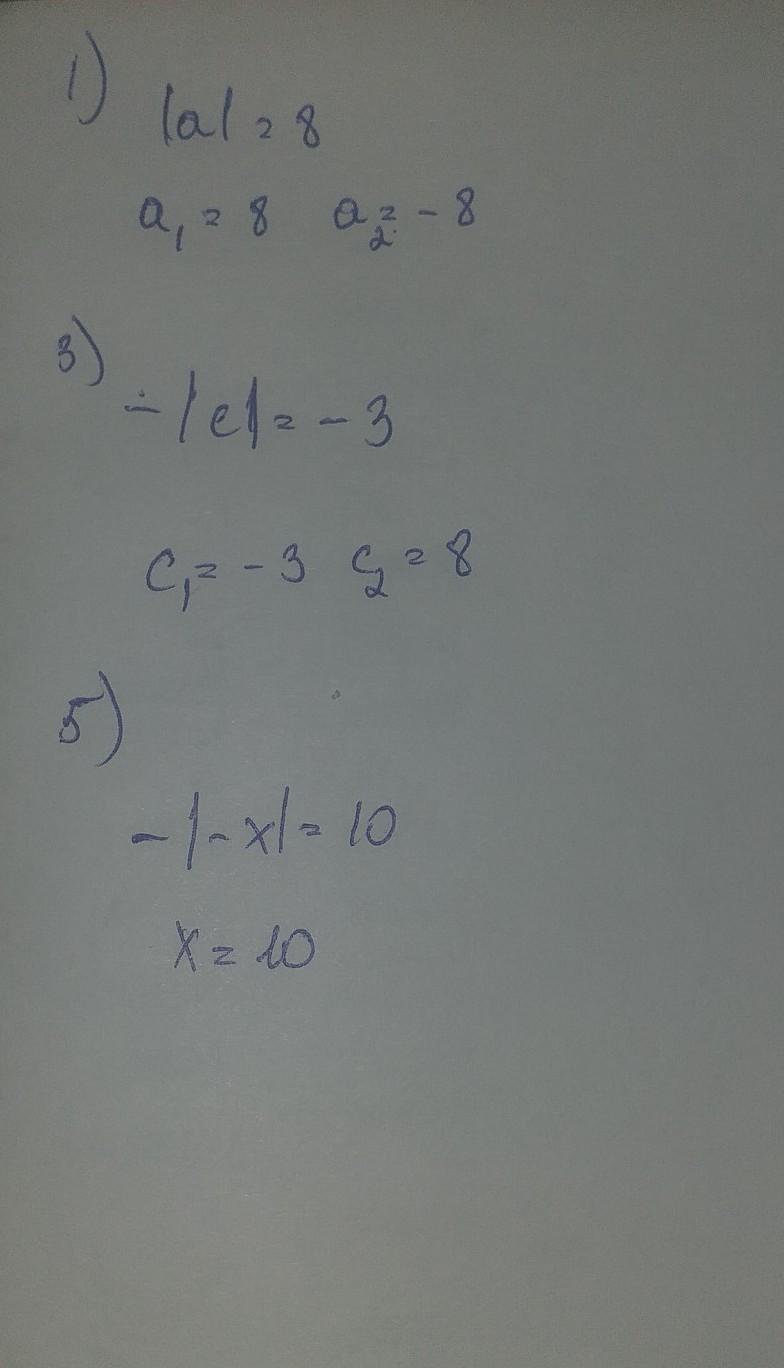 1)
|a| = 8
a₁ = 8 a₂ = - 8
3)
- |c| = - 3
c₁ = - 3 c₂ = 8
5)
- |- x| = 10
x = 10